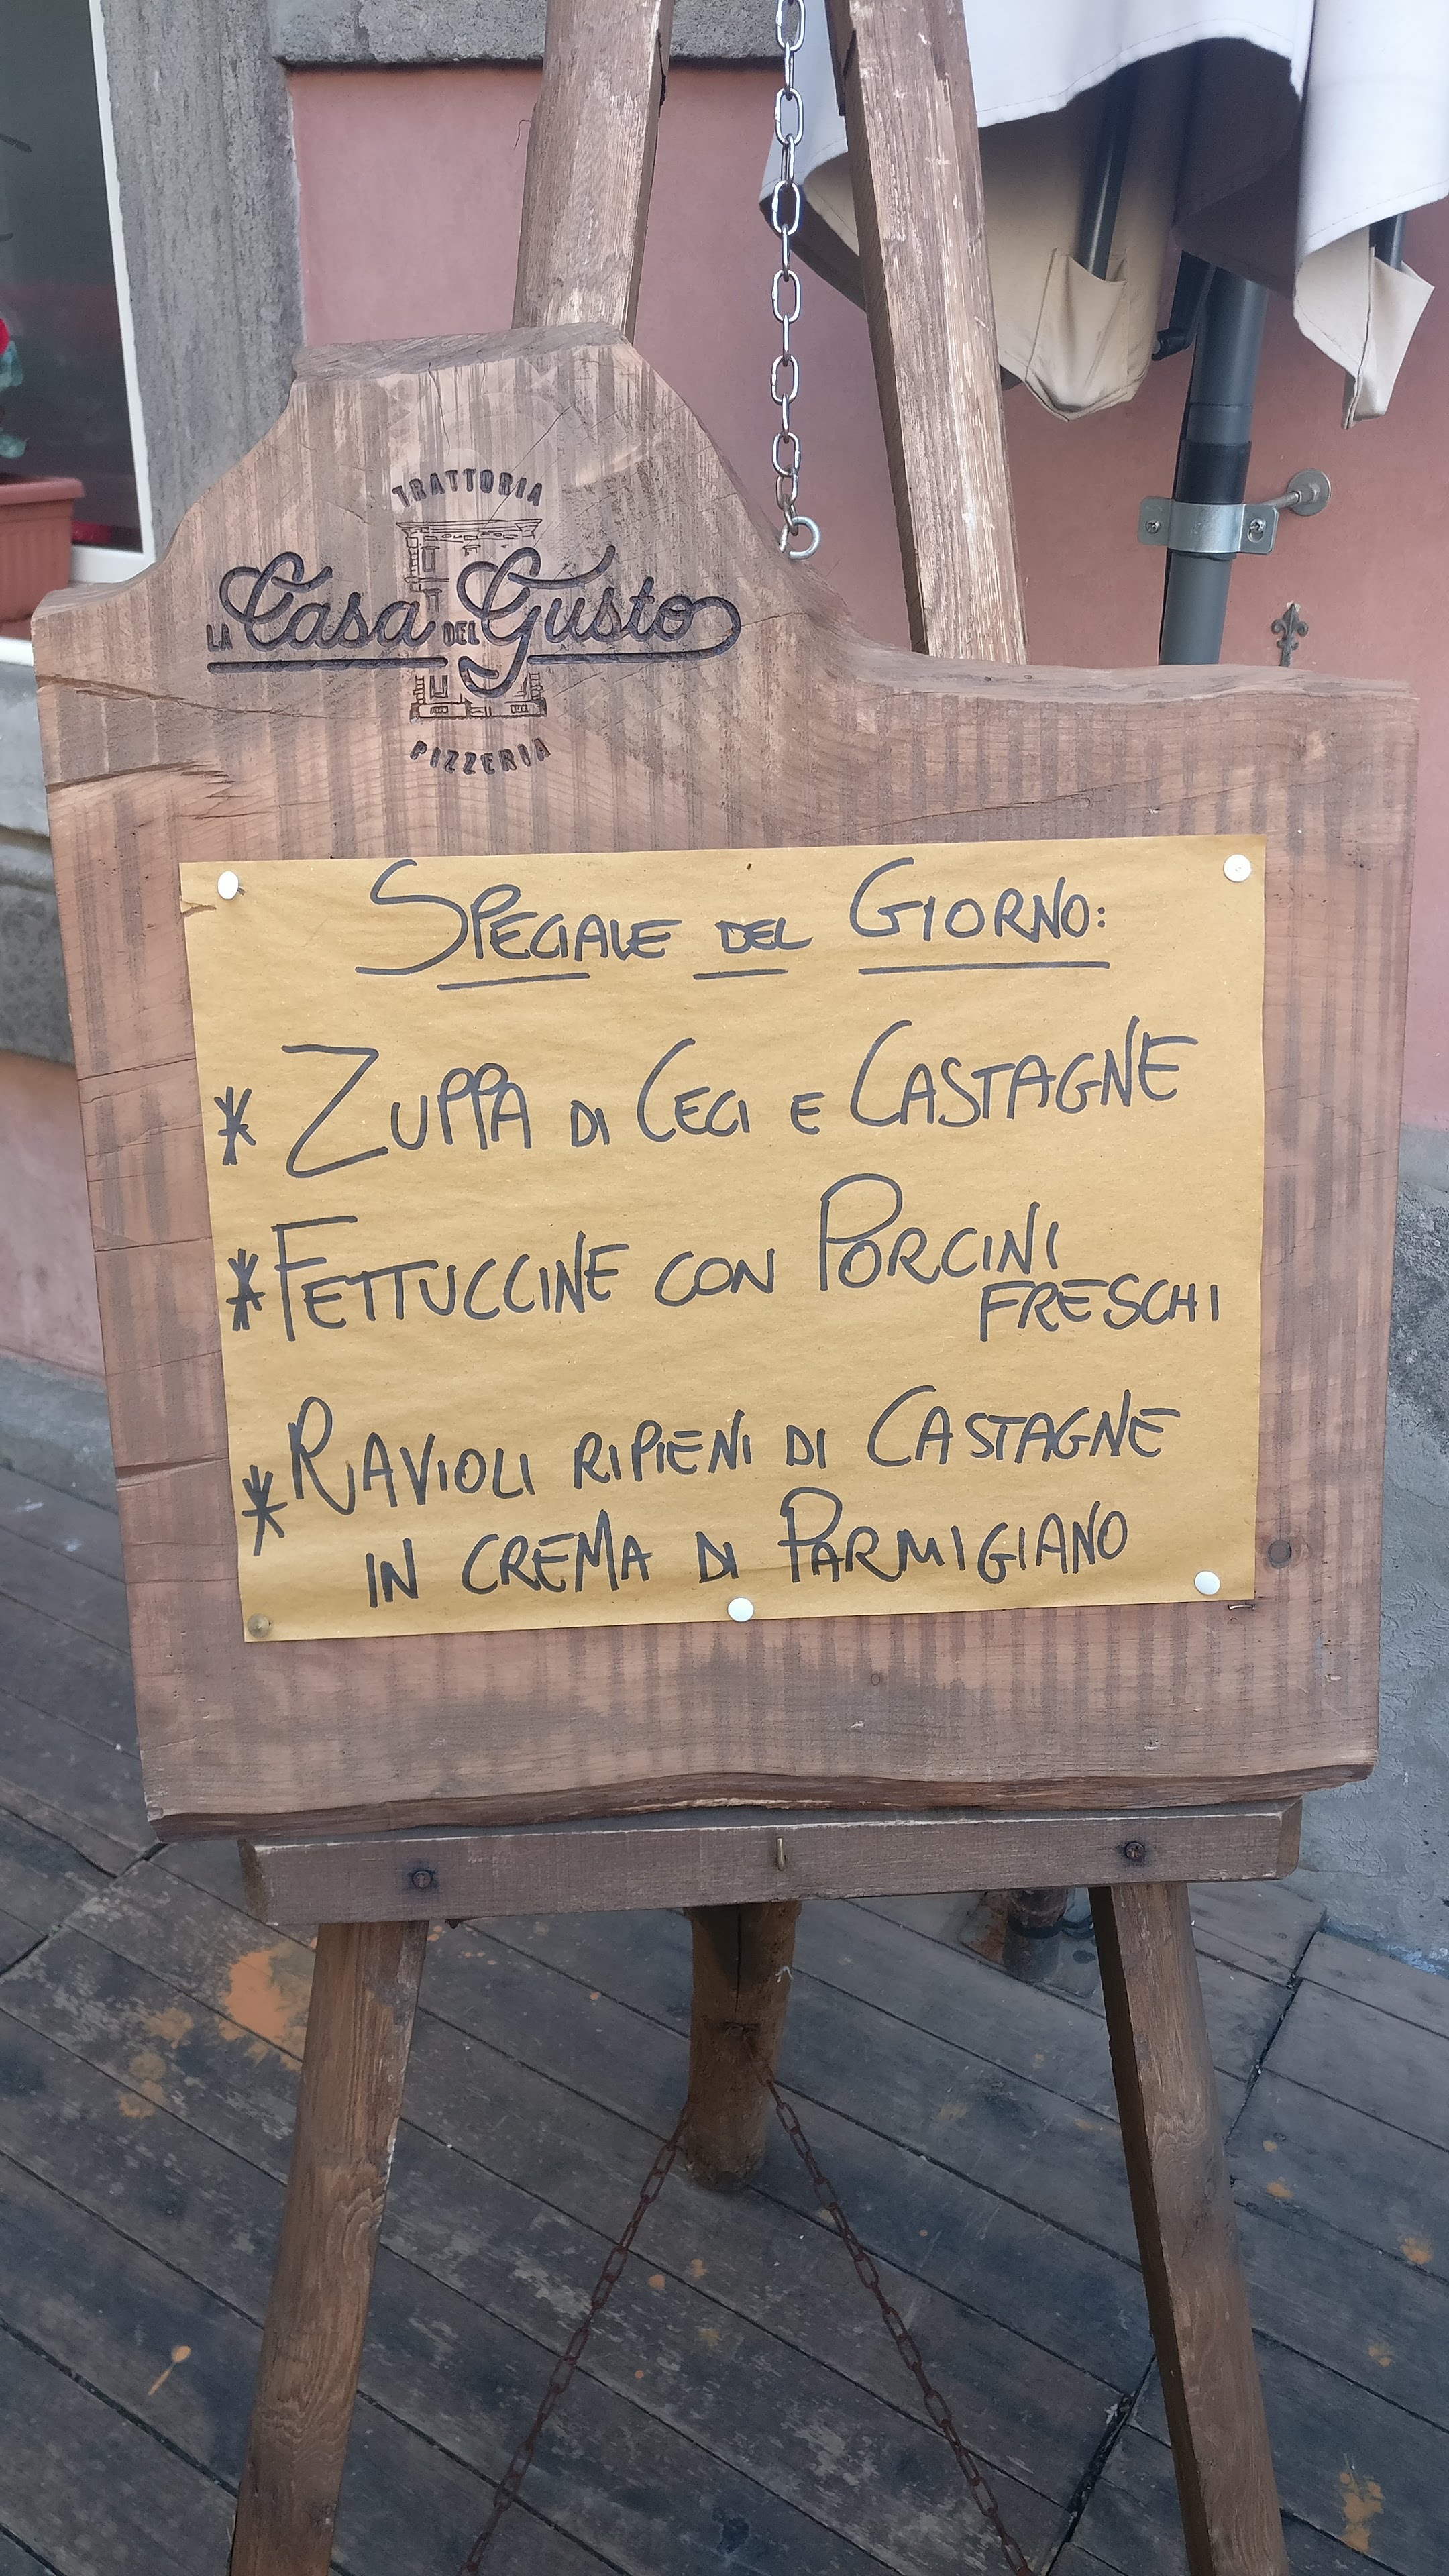 TRATTORIA
LA Casa DEL Gusto
PIZZERIA
SPECIALE DEL GIORNO:
* ZUPPA DI CECI E CASTAGNE
* FETTUCCINE CON PORCINI
FRESCHI
* RAVIOLI RIPIENI DI CASTAGNE
IN CREMA DI PARMIGIANO